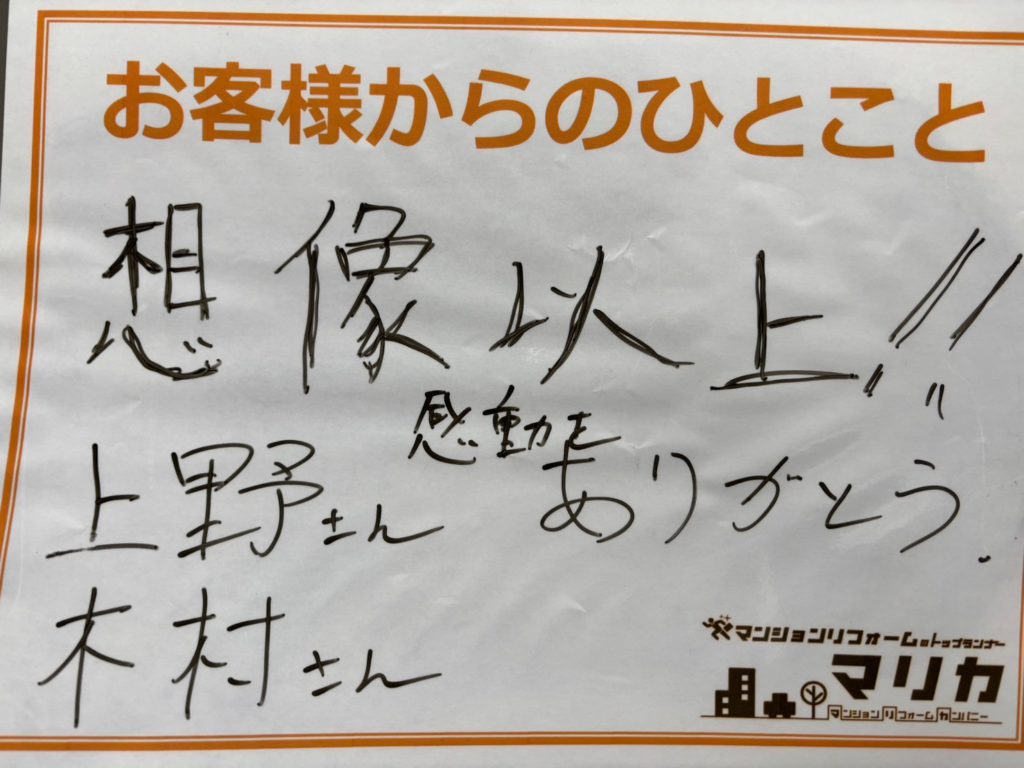 お客様からのひとこと
想像以上!!
感動を
上野さん ありがとう.
木村さん
マンションリフォームのトップランナー
マリカ
マンションリフォームカンパニー